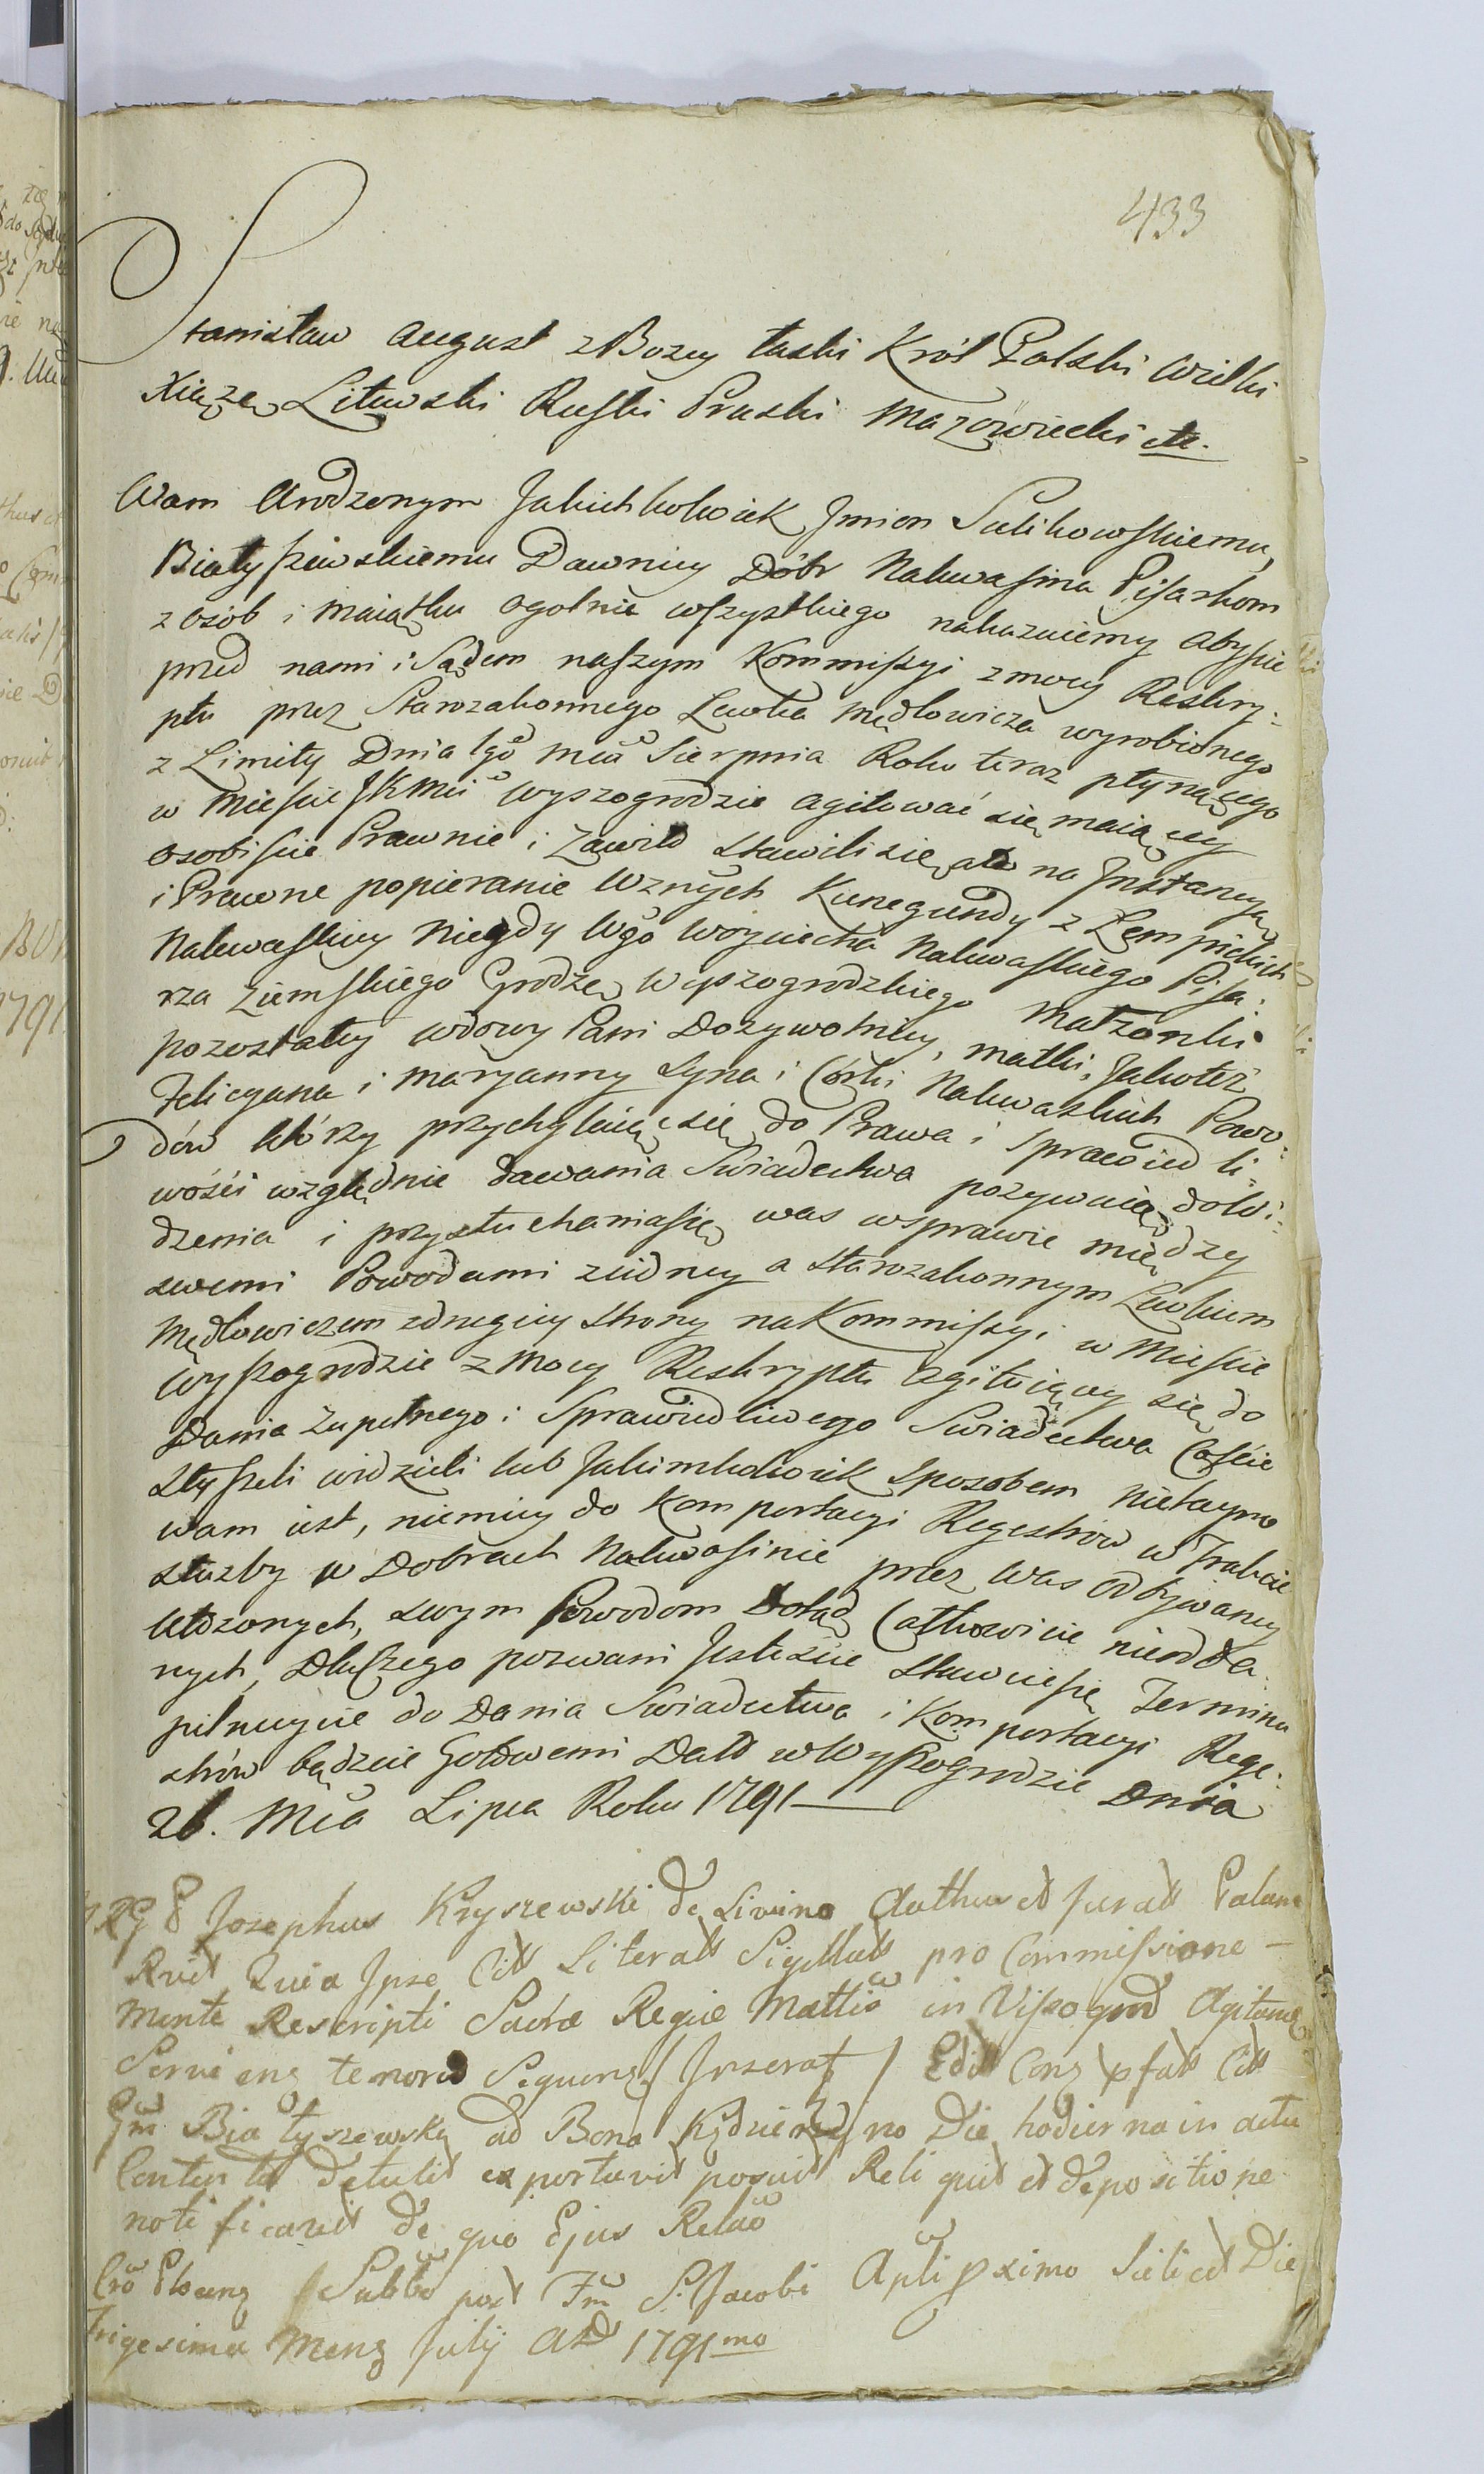 433
Stanisław August z Bozey łaski Król Polski Wielki
Xiąze Litewski Ruski Pruski Mazowiecki etc.
Wam Urodzonym Jakichkolwiek Jmion Sulikowskiemu,
Białyszewskiemu Dawniey Dóbr Nakwasina Pisarkom
z osób i maiątku ogolnie wszystkiego nakazuiemy abyscie
pred nami i Sądem naszym Kommissyi z mocy Reskry:
ptu prez Starozakonnego Lewka Mędlowicza wyrobionego
z Limity Dnia 1go Mca Sierpnia Roku teraz płynącego
w Miescie JKMci Wyszogrodzie agitować się maiącey
osobiscie Prawnie i Zawito stawili się a to na Jnstancyą
i Prawne popieranie Wznych Kunegundy z Lempickich
Nakwaskiey niegdy Wgo Woyciecha Nakwaskiego Pisa:
rza Ziemskiego Grodzo Wyszogrodzkiego Małzonki
pozostałey wdowy Pani Dozywotniey, matki, Jakoteż
Felicyana i Maryanny Syna i Córki Nakwaskich Powo:
dów którzy przychylaiąc się do Prawa i sprawiedli:
wości względnie dawania Swiadectwa pozywaią do wi:
dzenia i przysłuchania się was w sprawie między
swemi Powodami zeidney a Starozakonnym Lewkiem
Mędlowiczem zdrugiey strony na Kommissyi w Miescie
Wyszogrodzie z Mocy Reskryptu agituiącey się do
Dania zupełnego i Sprawiedliwego Swiadectwa Coście
słyszeli widzieli lub Jakimkolwiek sposobem nietayno
wam iest, niemniey do Komportacyi Regestrow w Trakcie
służby w Dobrach Nakwasinie przez Was odbywaney
ułożonych, swym Powodom Dotąd Całkowicie nieodda
nych, Dlaczego pozwani Jesteście stawcie się Terminu
pilnuycie do Dania Swiadectwa i Komportacyi Rege:
strów bądzcie Gotowemi Datt w Wyszogrodzie Dnia
26. Mca Lipca Roku 1791
Josephus Kryszewski de Livino Authus et Jurat Palam
Rvit Quia Jpse Citt Literatt Sigillatt pro Commissione
Mente Rescripti Sacræ Regiæ Mattis in Viszogrod Agitandæ
Serviens tenoris Sequens / Jnserat / Edit Conz pfatt Citt
Gm Białyszewsky ad Bona Kędzierzyno Die hodierna in actu
Contentt detulit exportavit posuit Reliquit et depositione
notificavit de quo Ejus Relao
Sabbo post Fm S. Jacobi Apli pximo Scilicet Die
Trigesima Menz Julij AD 1791mo